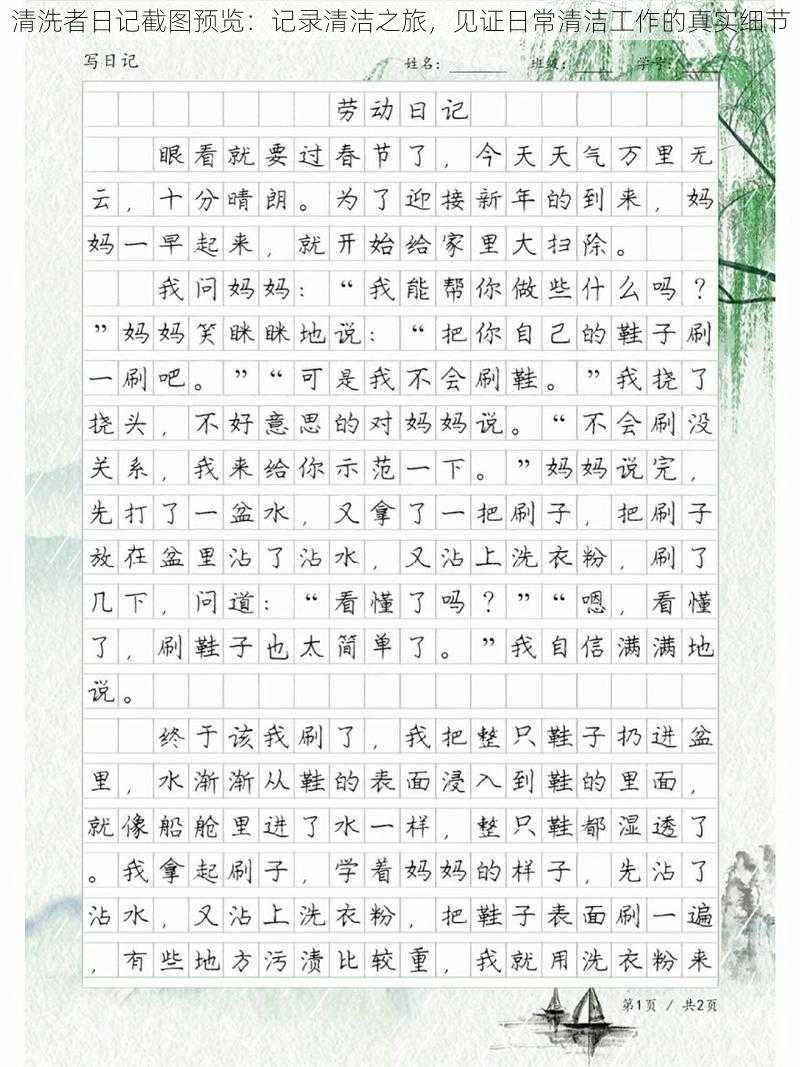 清洗者日记截图预览：记录清洁之旅，见证日常清洁工作的真实细节
写日记 姓名：______ 班级：____ 学号：____
劳动日记
眼看就要过春节了，今天天气万里无
云，十分晴朗。为了迎接新年的到来，妈
妈一早起来，就开始给家里大扫除。
我问妈妈：“我能帮你做些什么吗？
”妈妈笑眯眯地说：“把你自己的鞋子刷
一刷吧。”“可是我不会刷鞋。”我挠了
挠头，不好意思的对妈妈说。“不会刷没
关系，我来给你示范一下。”妈妈说完，
先打了一盆水，又拿了一把刷子，把刷子
放在盆里沾了沾水，又沾上洗衣粉，刷了
几下，问道：“看懂了吗？”“嗯，看懂
了，刷鞋子也太简单了。”我自信满满地
说。
终于该我刷了，我把整只鞋子扔进盆
里，水渐渐从鞋的表面浸入到鞋的里面，
就像船舱里进了水一样，整只鞋都湿透了
。我拿起刷子，学着妈妈的样子，先沾了
沾水，又沾上洗衣粉，把鞋子表面刷一遍
，有些地方污渍比较重，我就用洗衣粉来
第1页 / 共2页